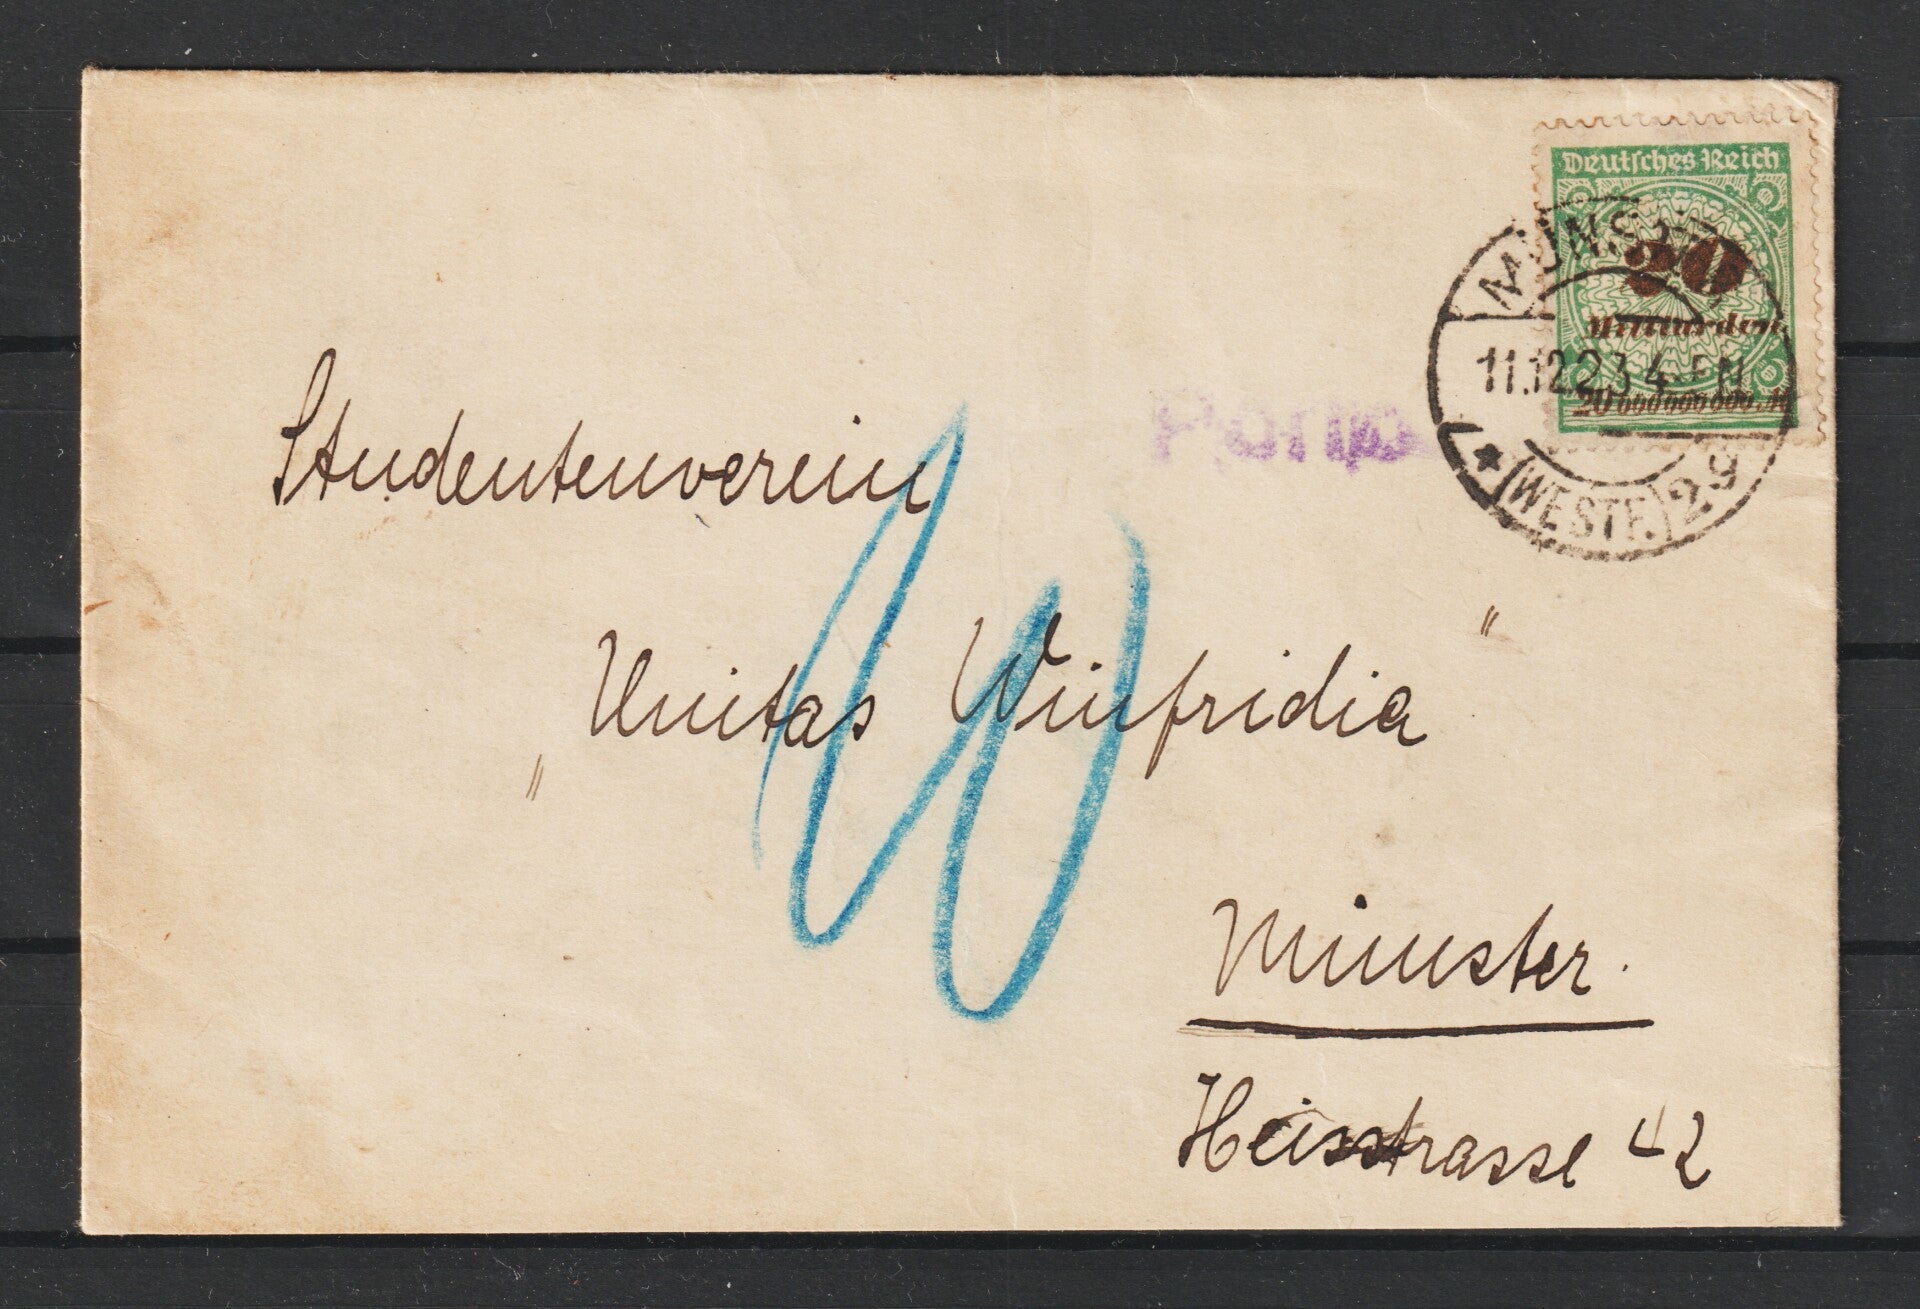 Deutsches Reich
20
Milliarden
20 000 000 000 M
MÜNSTER
11.12.23.4-5N
* (WESTF.) 2g
Porto
Studentenverein
„Unitas Winfridia"
10
Münster.
Heisstrasse 42